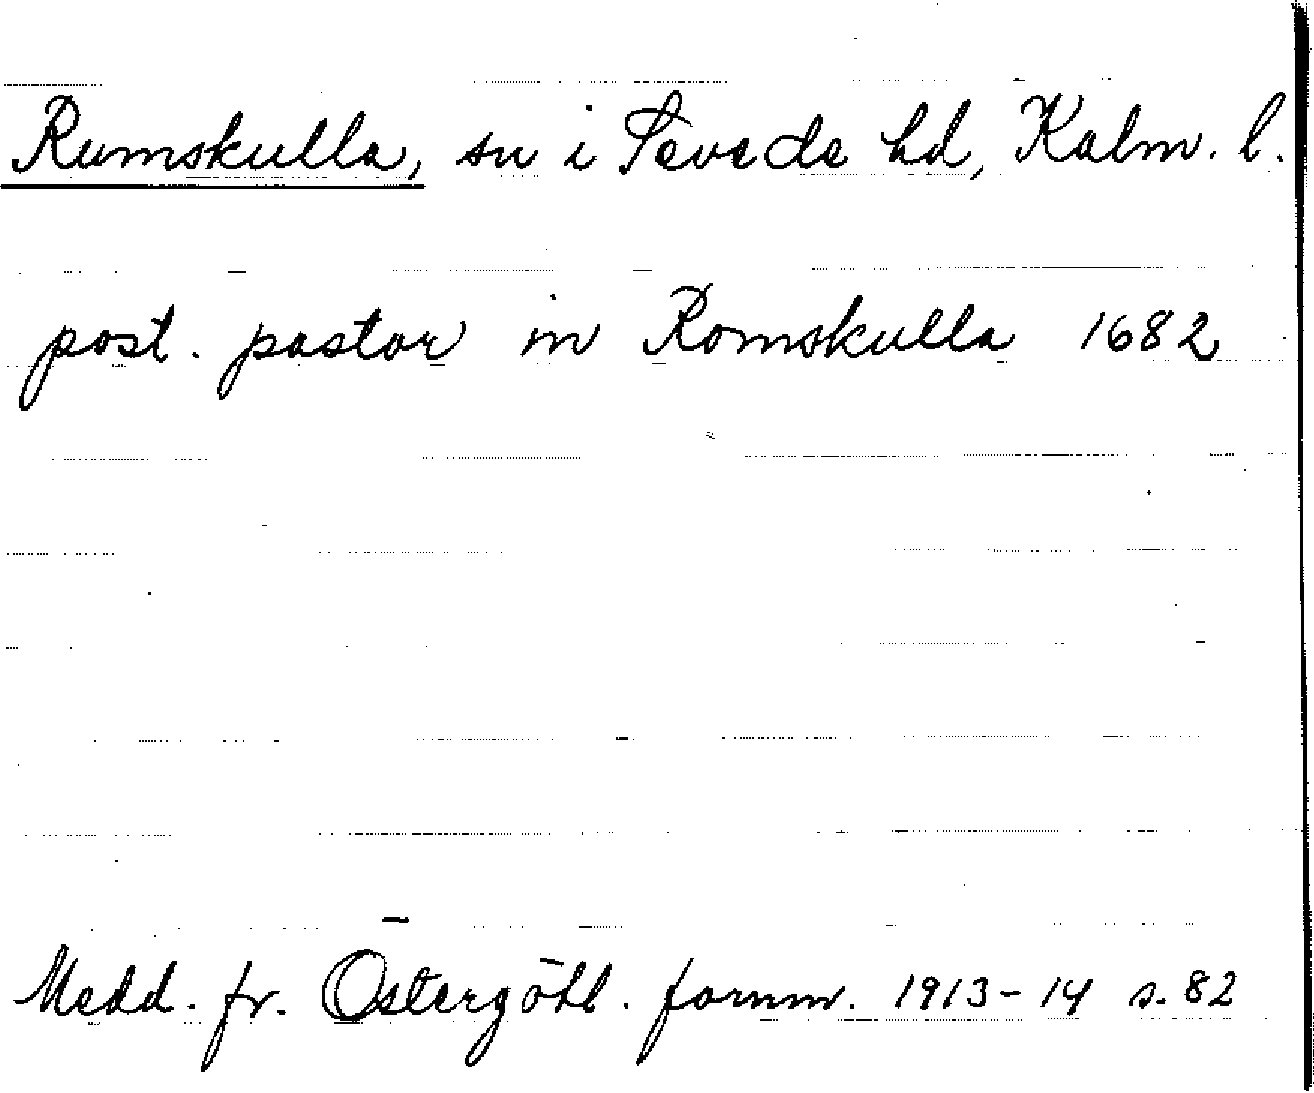 Rumskulla, sn i Sevede hd, Kalm. l.
post. pastor in Romskulla 1682
Medd. fr. Östergötl. fornm. 1913-14 s. 82